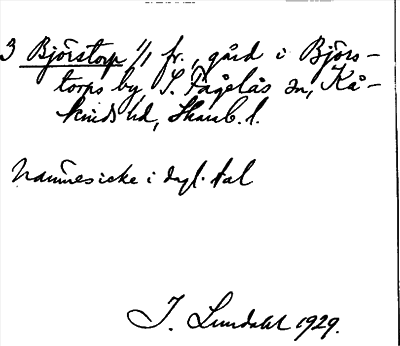 3 Björstorp 1/1 fr., gård i Björs-
torps by, S. Fågelås sn, Kå-
kinds hd, Skarab. l.
Namnes icke i dagl. tal
I. Lundahl 1929.